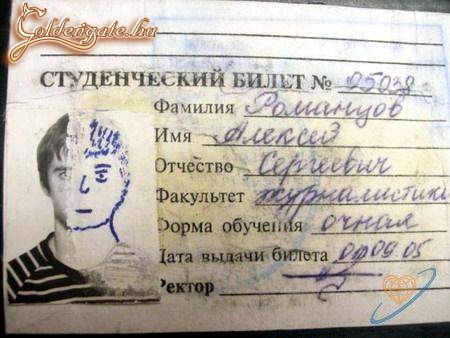 Goldengate.hu
СТУДЕНЧЕСКИЙ БИЛЕТ № 95038
Фамилия Романцов
Имя Алексей
Отчество Сергеевич
Факультет журналистики
Форма обучения очная
Дата выдачи билета 01.09.05
Ректор